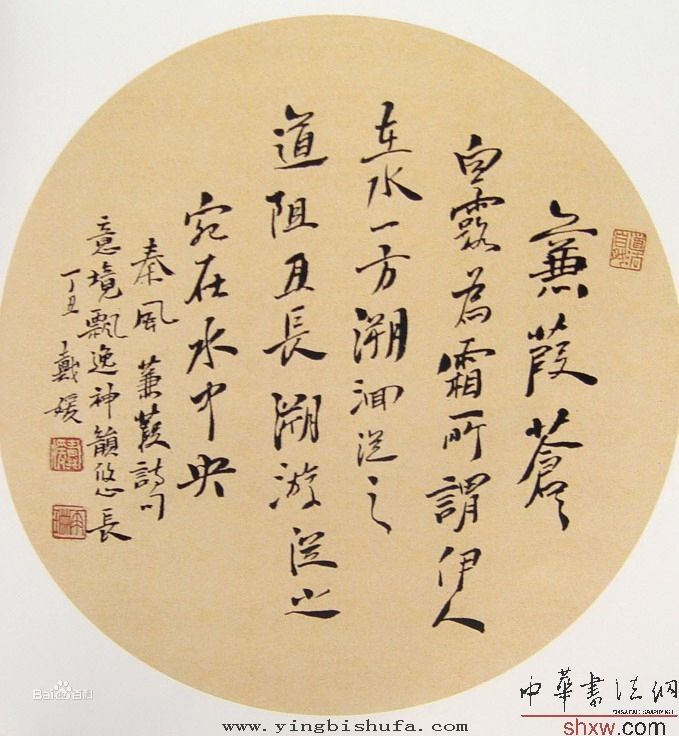 蒹葭蒼々
白露為霜所謂伊人
在水一方溯洄從之
道阻且長溯游從之
宛在水中央
秦風蒹葭詩句
意境飄逸神韻悠長
丁丑戴媛
Baidu百科
中華書法網
shxw.com
www.yingbishufa.com